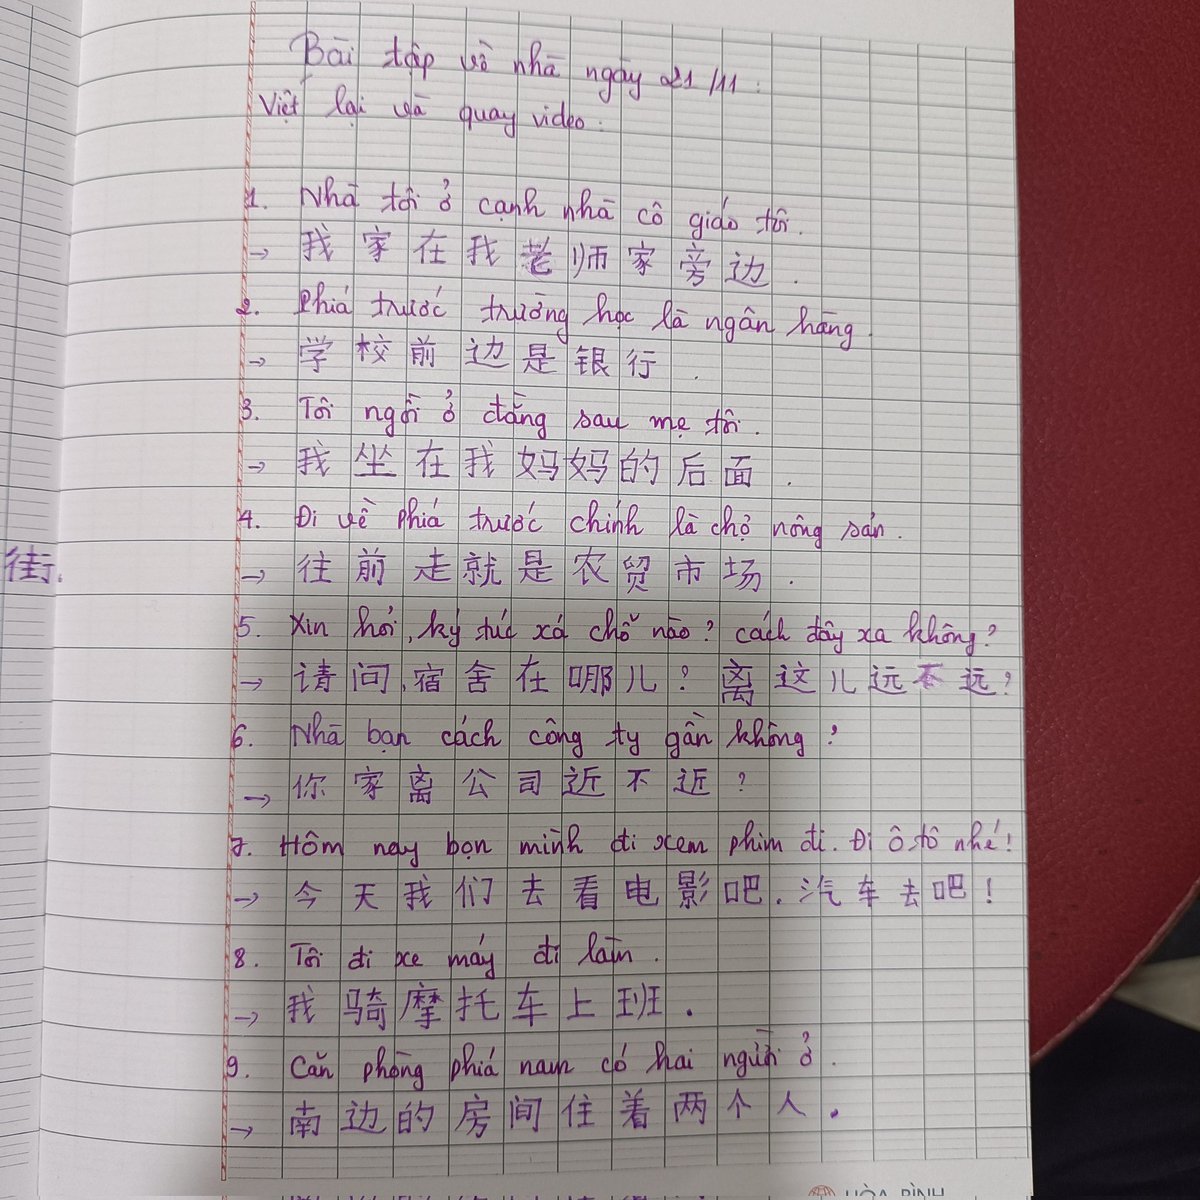 Bài tập về nhà ngày 21/11:
Viết lại và quay video:
1. Nhà tôi ở cạnh nhà cô giáo tôi.
→ 我家在我老师家旁边.
2. Phía trước trường học là ngân hàng.
→ 学校前边是银行.
3. Tôi ngồi ở đằng sau mẹ tôi.
→ 我坐在我妈妈的后面.
4. Đi về phía trước chính là chợ nông sản.
街.
→ 往前走就是农贸市场.
5. Xin hỏi, ký túc xá chỗ nào? cách đây xa không?
→ 请问,宿舍在哪儿? 离这儿远不远?
6. Nhà bạn cách công ty gần không?
→ 你家离公司近不近?
7. Hôm nay bọn mình đi xem phim đi. Đi ô tô nhé!
→ 今天我们去看电影吧. 汽车去吧!
8. Tôi đi xe máy đi làm.
→ 我骑摩托车上班.
9. Căn phòng phía nam có hai người ở.
→ 南边的房间住着两个人.
HÒA BÌNH